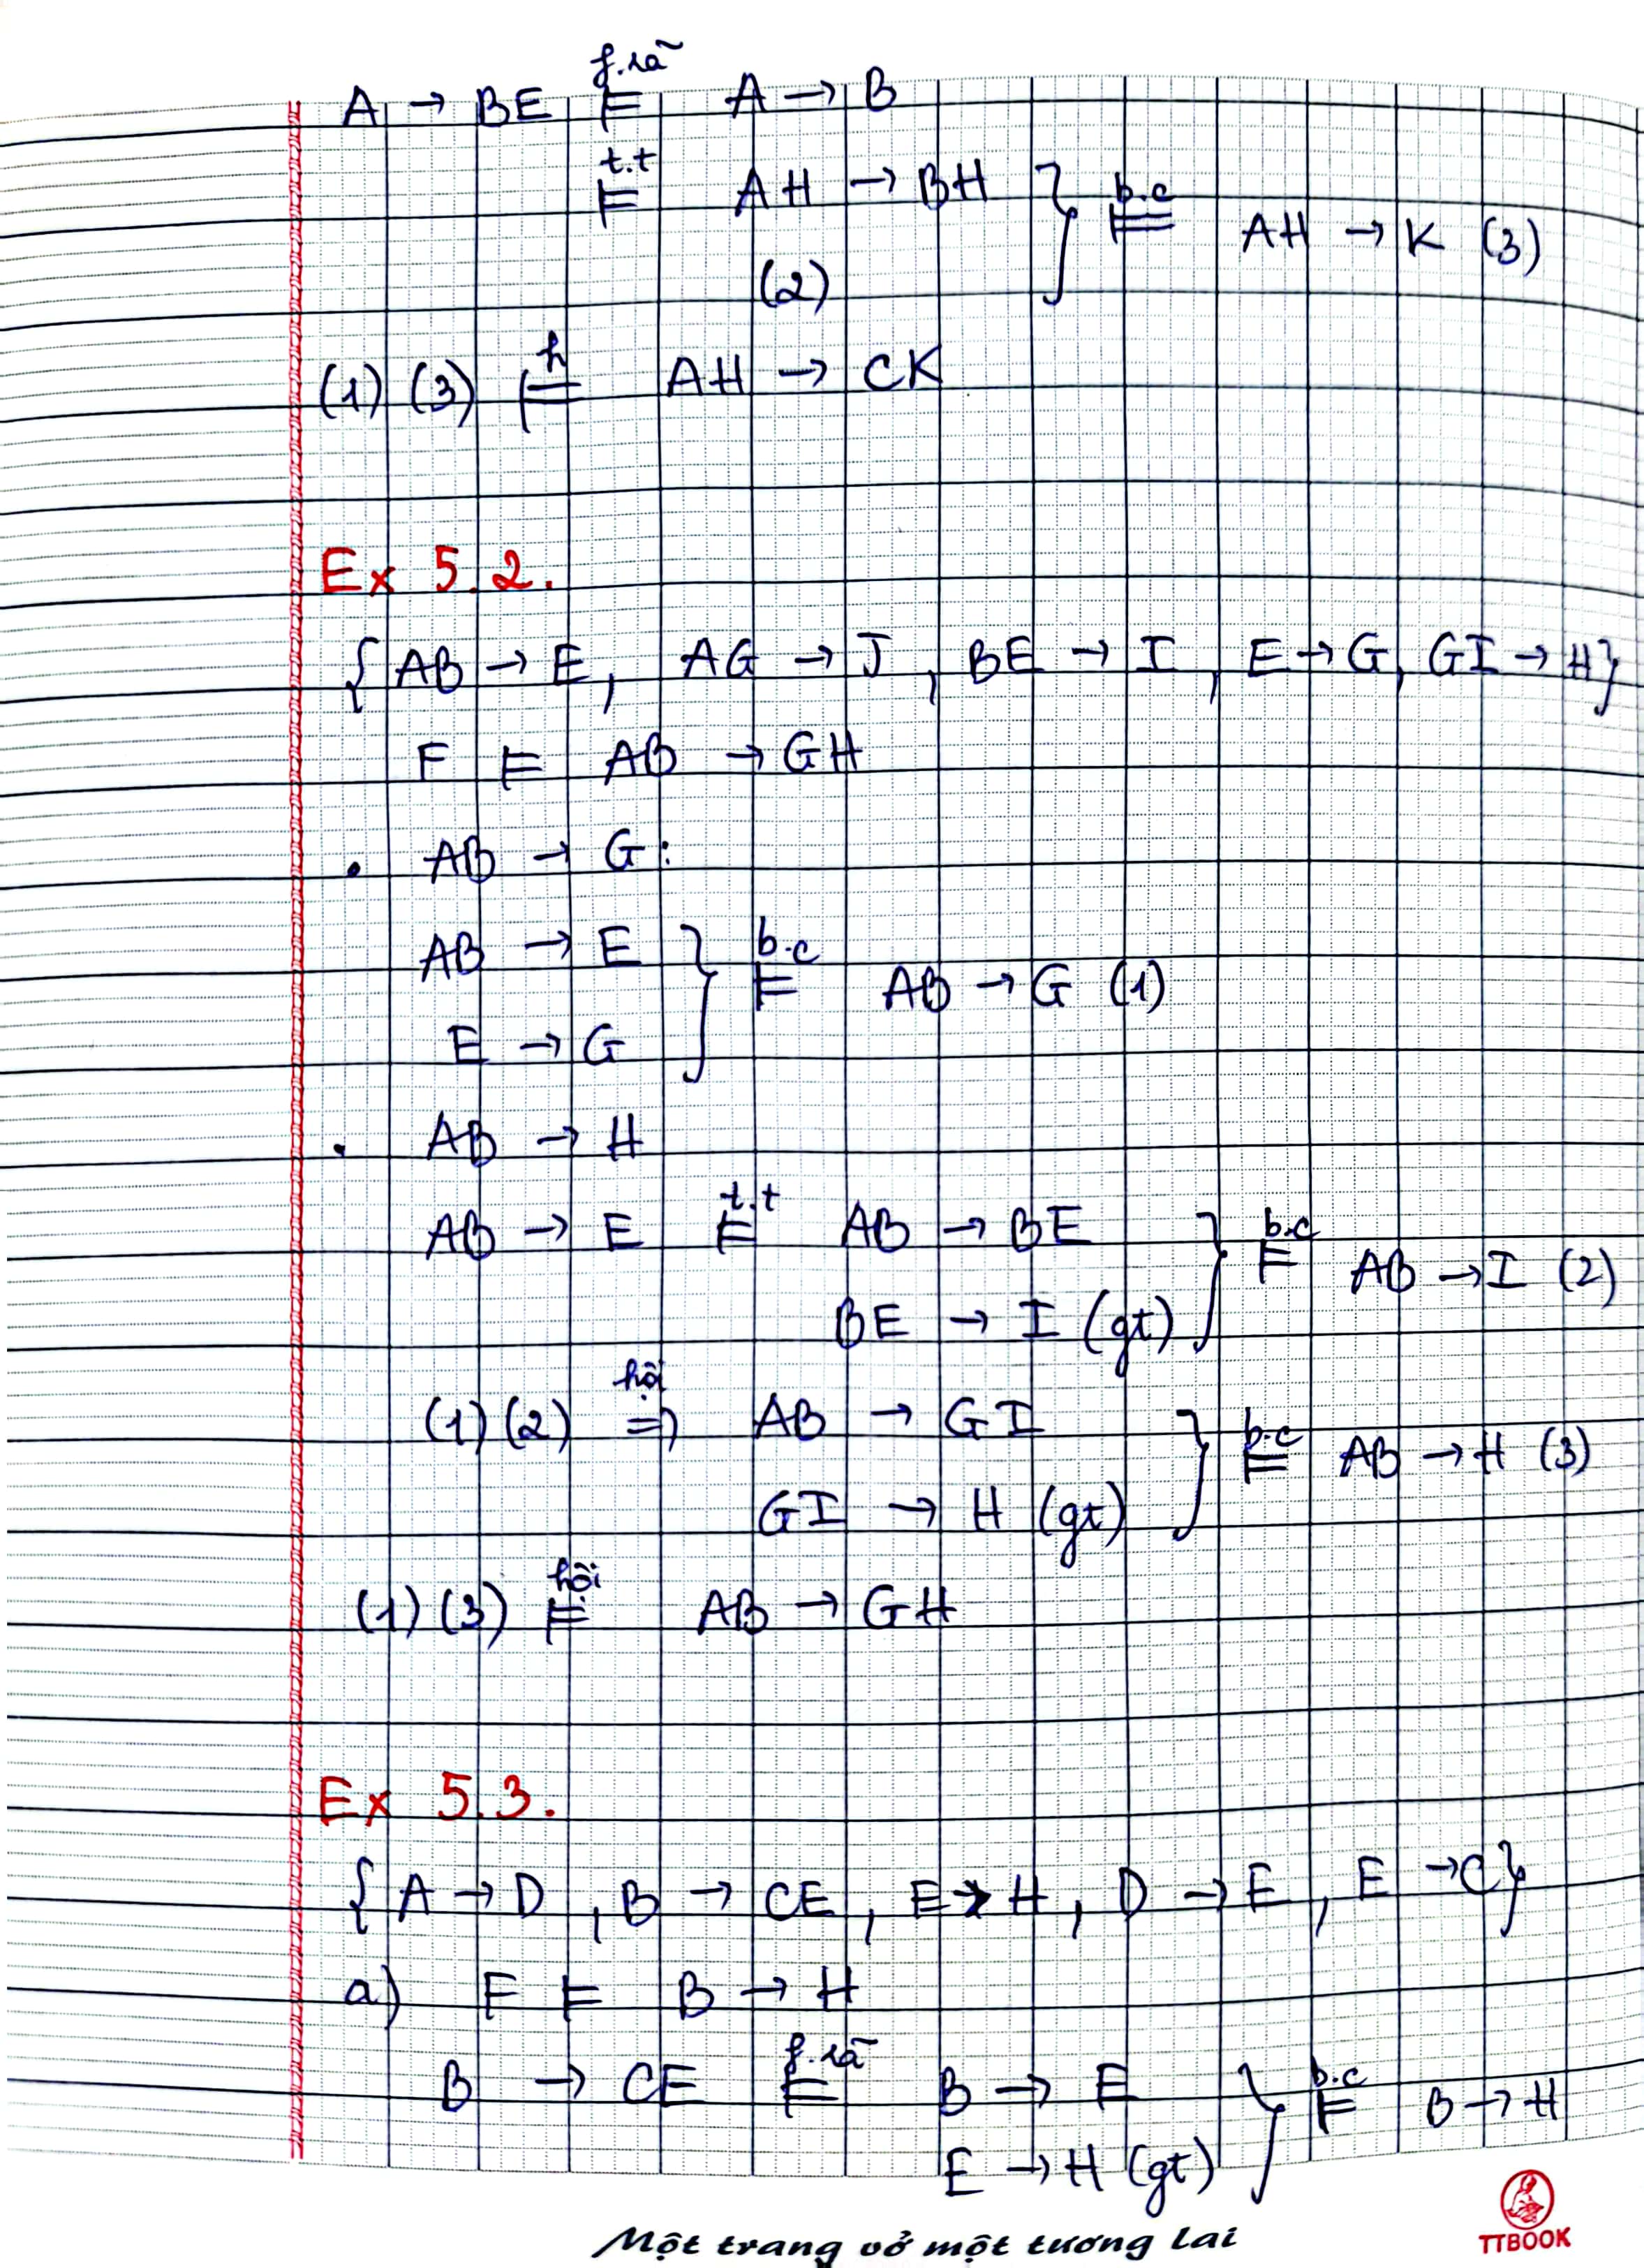 f.rã
A → BE ⊨ A → B
t.t
⊨ AH → BH } b.c ⊨ AH → K (3)
(2)
(1) (3) ⊨ h AH → CK
Ex 5.2.
{ AB → E, AG → J, BE → I, E → G, GI → H}
F ⊨ AB → GH
. AB → G:
AB → E } b.c ⊨ AB → G (1)
E → G
. AB → H
AB → E ⊨ t.t AB → BE } b.c ⊨ AB → I (2)
BE → I (gt)
(1) (2) ⇒ hội AB → GI } b.c ⊨ AB → H (3)
GI → H (gt)
(1) (3) ⊨ hội AB → GH
Ex 5.3.
{ A → D, B → CE, E → H, D → E, E → C}
a) F ⊨ B → H
B → CE ⊨ f.rã B → E } b.c ⊨ B → H
E → H (gt)
Một trang vở một tương lai
TTBOOK